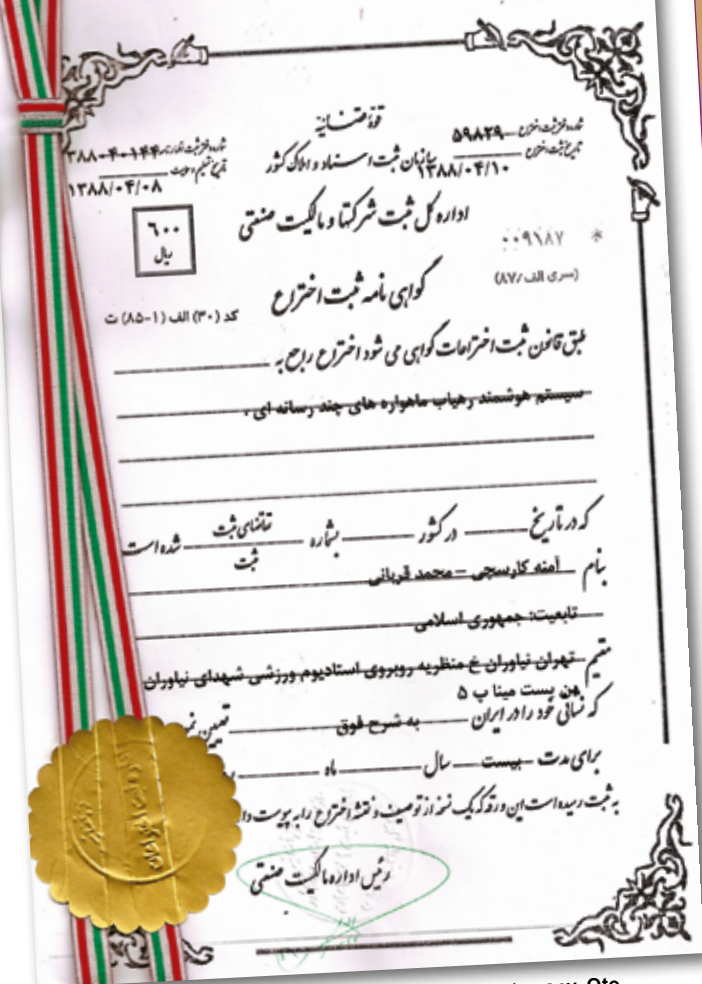 قوه قضائیه
شماره دفتر ثبت اختراع ۵۹۸۲۹
تاریخ ثبت اختراع ۱۳۸۸/۰۴/۱۰
سازمان ثبت اسناد و املاک کشور
شماره دفتر ثبت اظهارنامه ۳۸۸۰۴۰۱۴۴
تاریخ تسلیم ۱۳۸۸/۰۴/۰۸
اداره کل ثبت شرکتها و مالکیت صنعتی
۶۰۰
ریال
۰۰۹۱۸۷ *
(سری الف/۸۷)
گواهی نامه ثبت اختراع
کد (۳۰) الف (۱-۸۵) ت
طبق قانون ثبت اختراعات گواهی می شود اختراع راجع به
سیستم هوشمند رهیاب ماهواره های چند رسانه ای .
که در تاریخ در کشور بشماره تقاضای ثبت
ثبت شده است
بنام آمنه کارسجی - محمد قربانی
تابعیت: جمهوری اسلامی
مقیم تهران نیاوران خ منظریه روبروی استادیوم ورزشی شهدای نیاوران
بن بست مینا پ ۵
که نشانی خود را در ایران به شرح فوق تعیین
برای مدت بیست سال ماه
به ثبت رسیده است این ورقه که یک نسخه از توصیف و نقشه اختراع را به پیوست
رئیس اداره مالکیت صنعتی